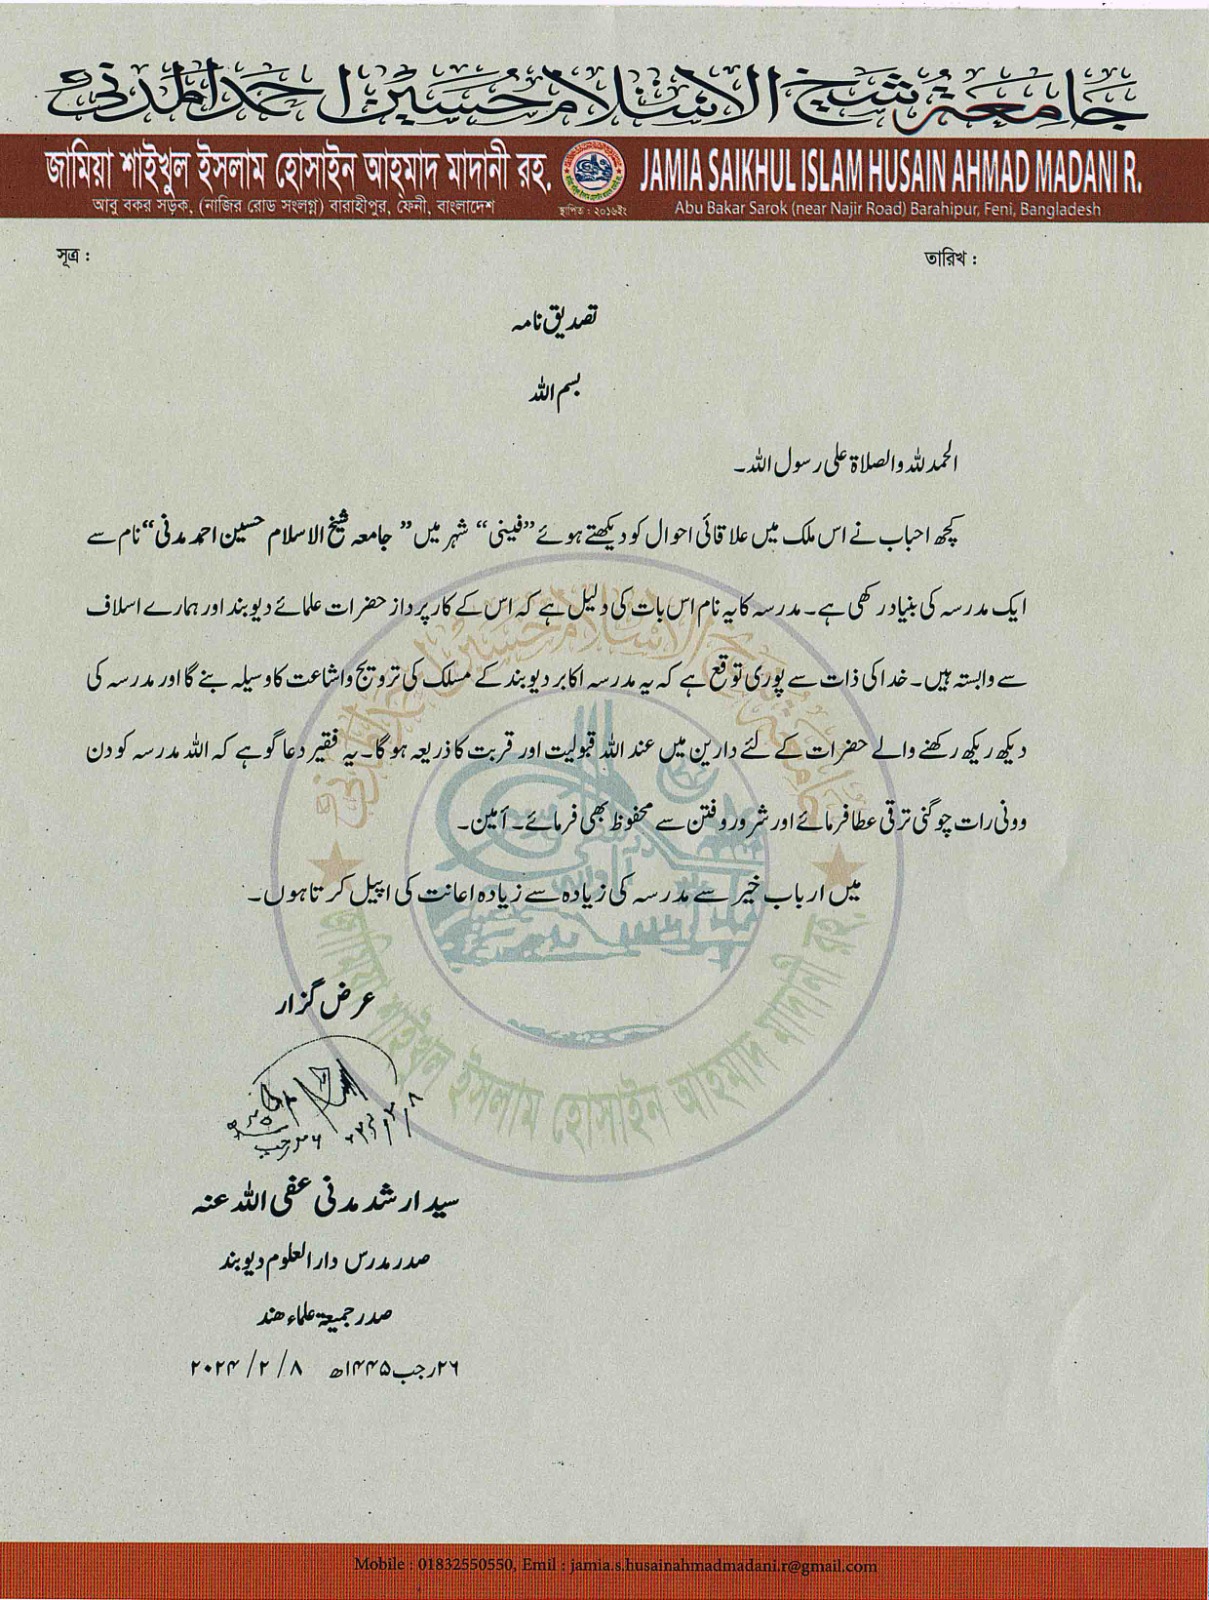 جامعة شيخ الإسلام حسين احمد المدني
জামিয়া শাইখুল ইসলাম হোসাইন আহমাদ মাদানী রহ.
JAMIA SAIKHUL ISLAM HUSAIN AHMAD MADANI R.
আবু বকর সড়ক, (নাজির রোড সংলগ্ন) বারাহীপুর, ফেনী, বাংলাদেশ
স্থাপিত : ২০১৬ইং
Abu Bakar Sarok (near Najir Road) Barahipur, Feni, Bangladesh
সূত্র :
তারিখ :
تصدیق نامہ
بسم اللہ
الحمد للہ والصلاۃ علی رسول اللہ۔
کچھ احباب نے اس ملک میں علاقائی احوال کو دیکھتے ہوئے ”فینی“ شہر میں ” جامعہ شیخ الاسلام حسین احمد مدنی“ نام سے
ایک مدرسہ کی بنیاد رکھی ہے۔ مدرسہ کا یہ نام اس بات کی دلیل ہے کہ اس کے کارپرداز حضرات علمائے دیوبند اور ہمارے اسلاف
سے وابستہ ہیں۔ خدا کی ذات سے پوری توقع ہے کہ یہ مدرسہ اکابر دیوبند کے مسلک کی ترویج واشاعت کا وسیلہ بنے گا اور مدرسہ کی
دیکھ ریکھ رکھنے والے حضرات کے لئے دارین میں عند اللہ قبولیت اور قربت کا ذریعہ ہوگا۔ یہ فقیر دعا گو ہے کہ اللہ مدرسہ کو دن
وونی رات چوگنی ترقی عطا فرمائے اور شرور وفتن سے محفوظ بھی فرمائے۔ آمین۔
میں ارباب خیر سے مدرسہ کی زیادہ سے زیادہ اعانت کی اپیل کرتا ہوں۔
জামিয়া শাইখুল ইসলাম হোসাইন আহমাদ মাদানী রহ.
عرض گزار
سید ارشد مدنی عفی اللہ عنہ
صدر مدرس دار العلوم دیوبند
صدر جمیعۃ علماء ھند
۲۶ رجب ۱۴۴۵ھ ۸ / ۲ / ۲۰۲۴
Mobile : 01832550550, Emil : jamia.s.husainahmadmadani.r@gmail.com